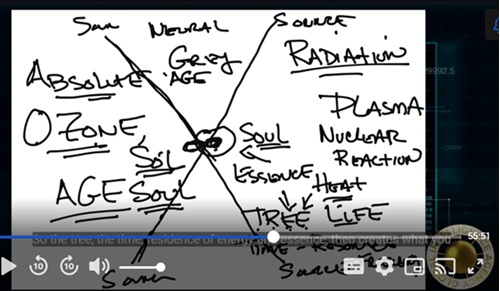 Soul
NEURAL
SOURCE
GREY
AGE
RADIATION
ABSOLUTE
PLASMA
OZONE
SOUL
NUCLEAR
REACTION
SOL
ESSENCE
HEAT
AGE SOUL
TREE LIFE
So the tree, the time, residence of energy and essence, then creates what you
55:51
TIME - RESIDENCE
SOURCE
10
10